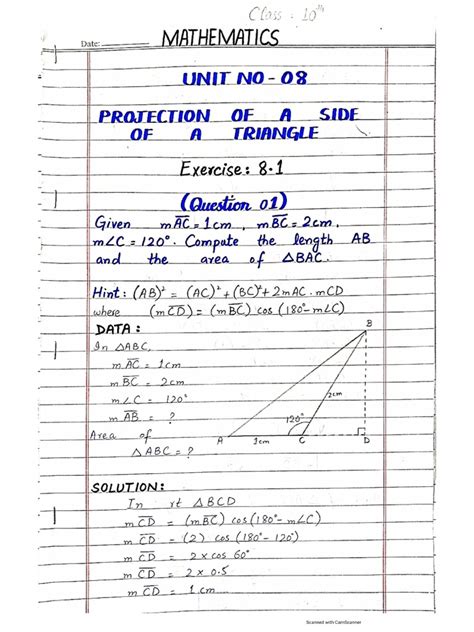 Class : 10th
Date:
MATHEMATICS
UNIT NO - 08
PROJECTION OF A SIDE
OF A TRIANGLE
Exercise: 8.1
(Question 01)
Given mAC = 1cm , mBC = 2cm ,
m∠C = 120°. Compute the length AB
and the area of △BAC.
Hint: (AB)² = (AC)² + (BC)² + 2mAC . mCD
where (mCD) = (mBC) cos (180° - m∠C)
DATA :
In △ABC,
mAC = 1cm
mBC = 2cm
m∠C = 120°
mAB = ?
Area of
△ABC = ?
B
2cm
120°
A 1cm C D
SOLUTION:
In rt △BCD
mCD = (mBC) cos (180° - m∠C)
mCD = (2) cos (180° - 120°)
mCD = 2 x cos 60°
mCD = 2 x 0.5
mCD = 1 cm
Scanned with CamScanner